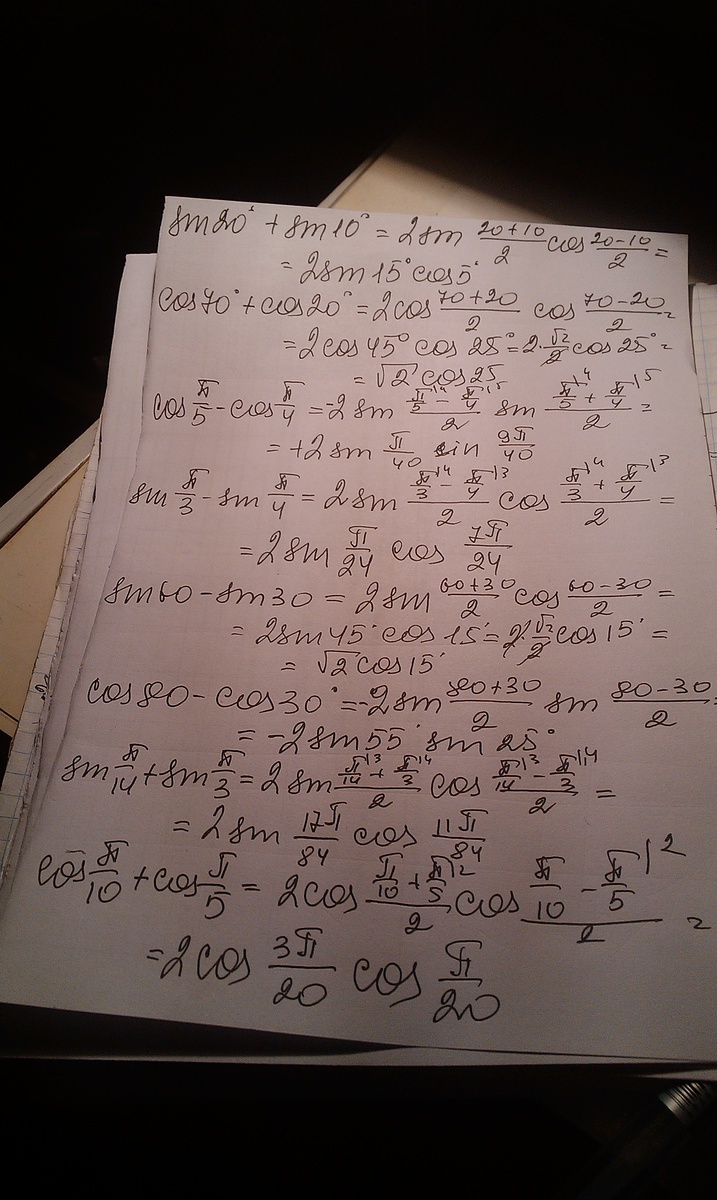 sin20° + sin10° = 2sin (20+10)/2 cos (20-10)/2 =
= 2sin15°cos5°
cos70° + cos20° = 2cos (70+20)/2 cos (70-20)/2 =
= 2cos45° cos 25° = 2·√2/2 cos 25° =
= √2 cos25
cos π/5 - cos π/4 = -2sin (π/5|4 - π/4|5)/2 sin (π/5|4 + π/4|5)/2 =
= +2sin π/40 sin 9π/40
sin π/3 - sin π/4 = 2sin (π/3|4 - π/4|3)/2 cos (π/3|4 + π/4|3)/2 =
= 2sin π/24 cos 7π/24
sin60 - sin30 = 2sin (60+30)/2 cos (60-30)/2 =
= 2sin45° cos 15° = 2·√2/2 cos 15° =
= √2 cos15°
cos80 - cos30° = -2sin (80+30)/2 sin (80-30)/2 =
= -2sin55° sin 25°
sin π/14 + sin π/3 = 2sin (π/14|3 + π/3|14)/2 cos (π/14|3 - π/3|14)/2 =
= 2sin 17π/84 cos 11π/84
cos π/10 + cos π/5 = 2cos (π/10 + π/5|2)/2 cos (π/10 - π/5|2)/2 =
= 2cos 3π/20 cos π/20